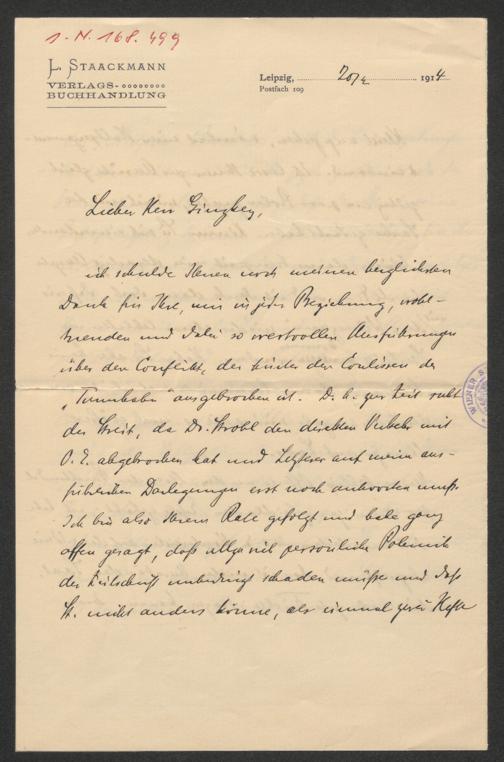 1. N. 168.499
L. STAACKMANN
VERLAGS-
BUCHHANDLUNG
Leipzig, 20/2 1914
Postfach 109
Lieber Herr Ginzkey,
ich schulde Ihnen noch meinen herzlichsten
Dank für Ihre, mir in jeder Beziehung, wohl-
tuenden und dabei so wertvollen Ausführungen
über den Conflikt, der hinter den Coulissen des
"Turmhahn" ausgebrochen ist. D. h. zur Zeit ruht
der Streit, da Dr. Strobl den direkten Verkehr mit
O. E. abgebrochen hat und Letzterer auf meine aus-
führlichen Darlegungen erst noch antworten muß.
Ich bin also Ihrem Rate gefolgt und habe ganz
offen gesagt, daß allzu viel persönliche Polemik
der Zeitschrift unbedingt schaden müsse und daß
St. nicht anders könne, als einmal zwei Hefte
WIENER